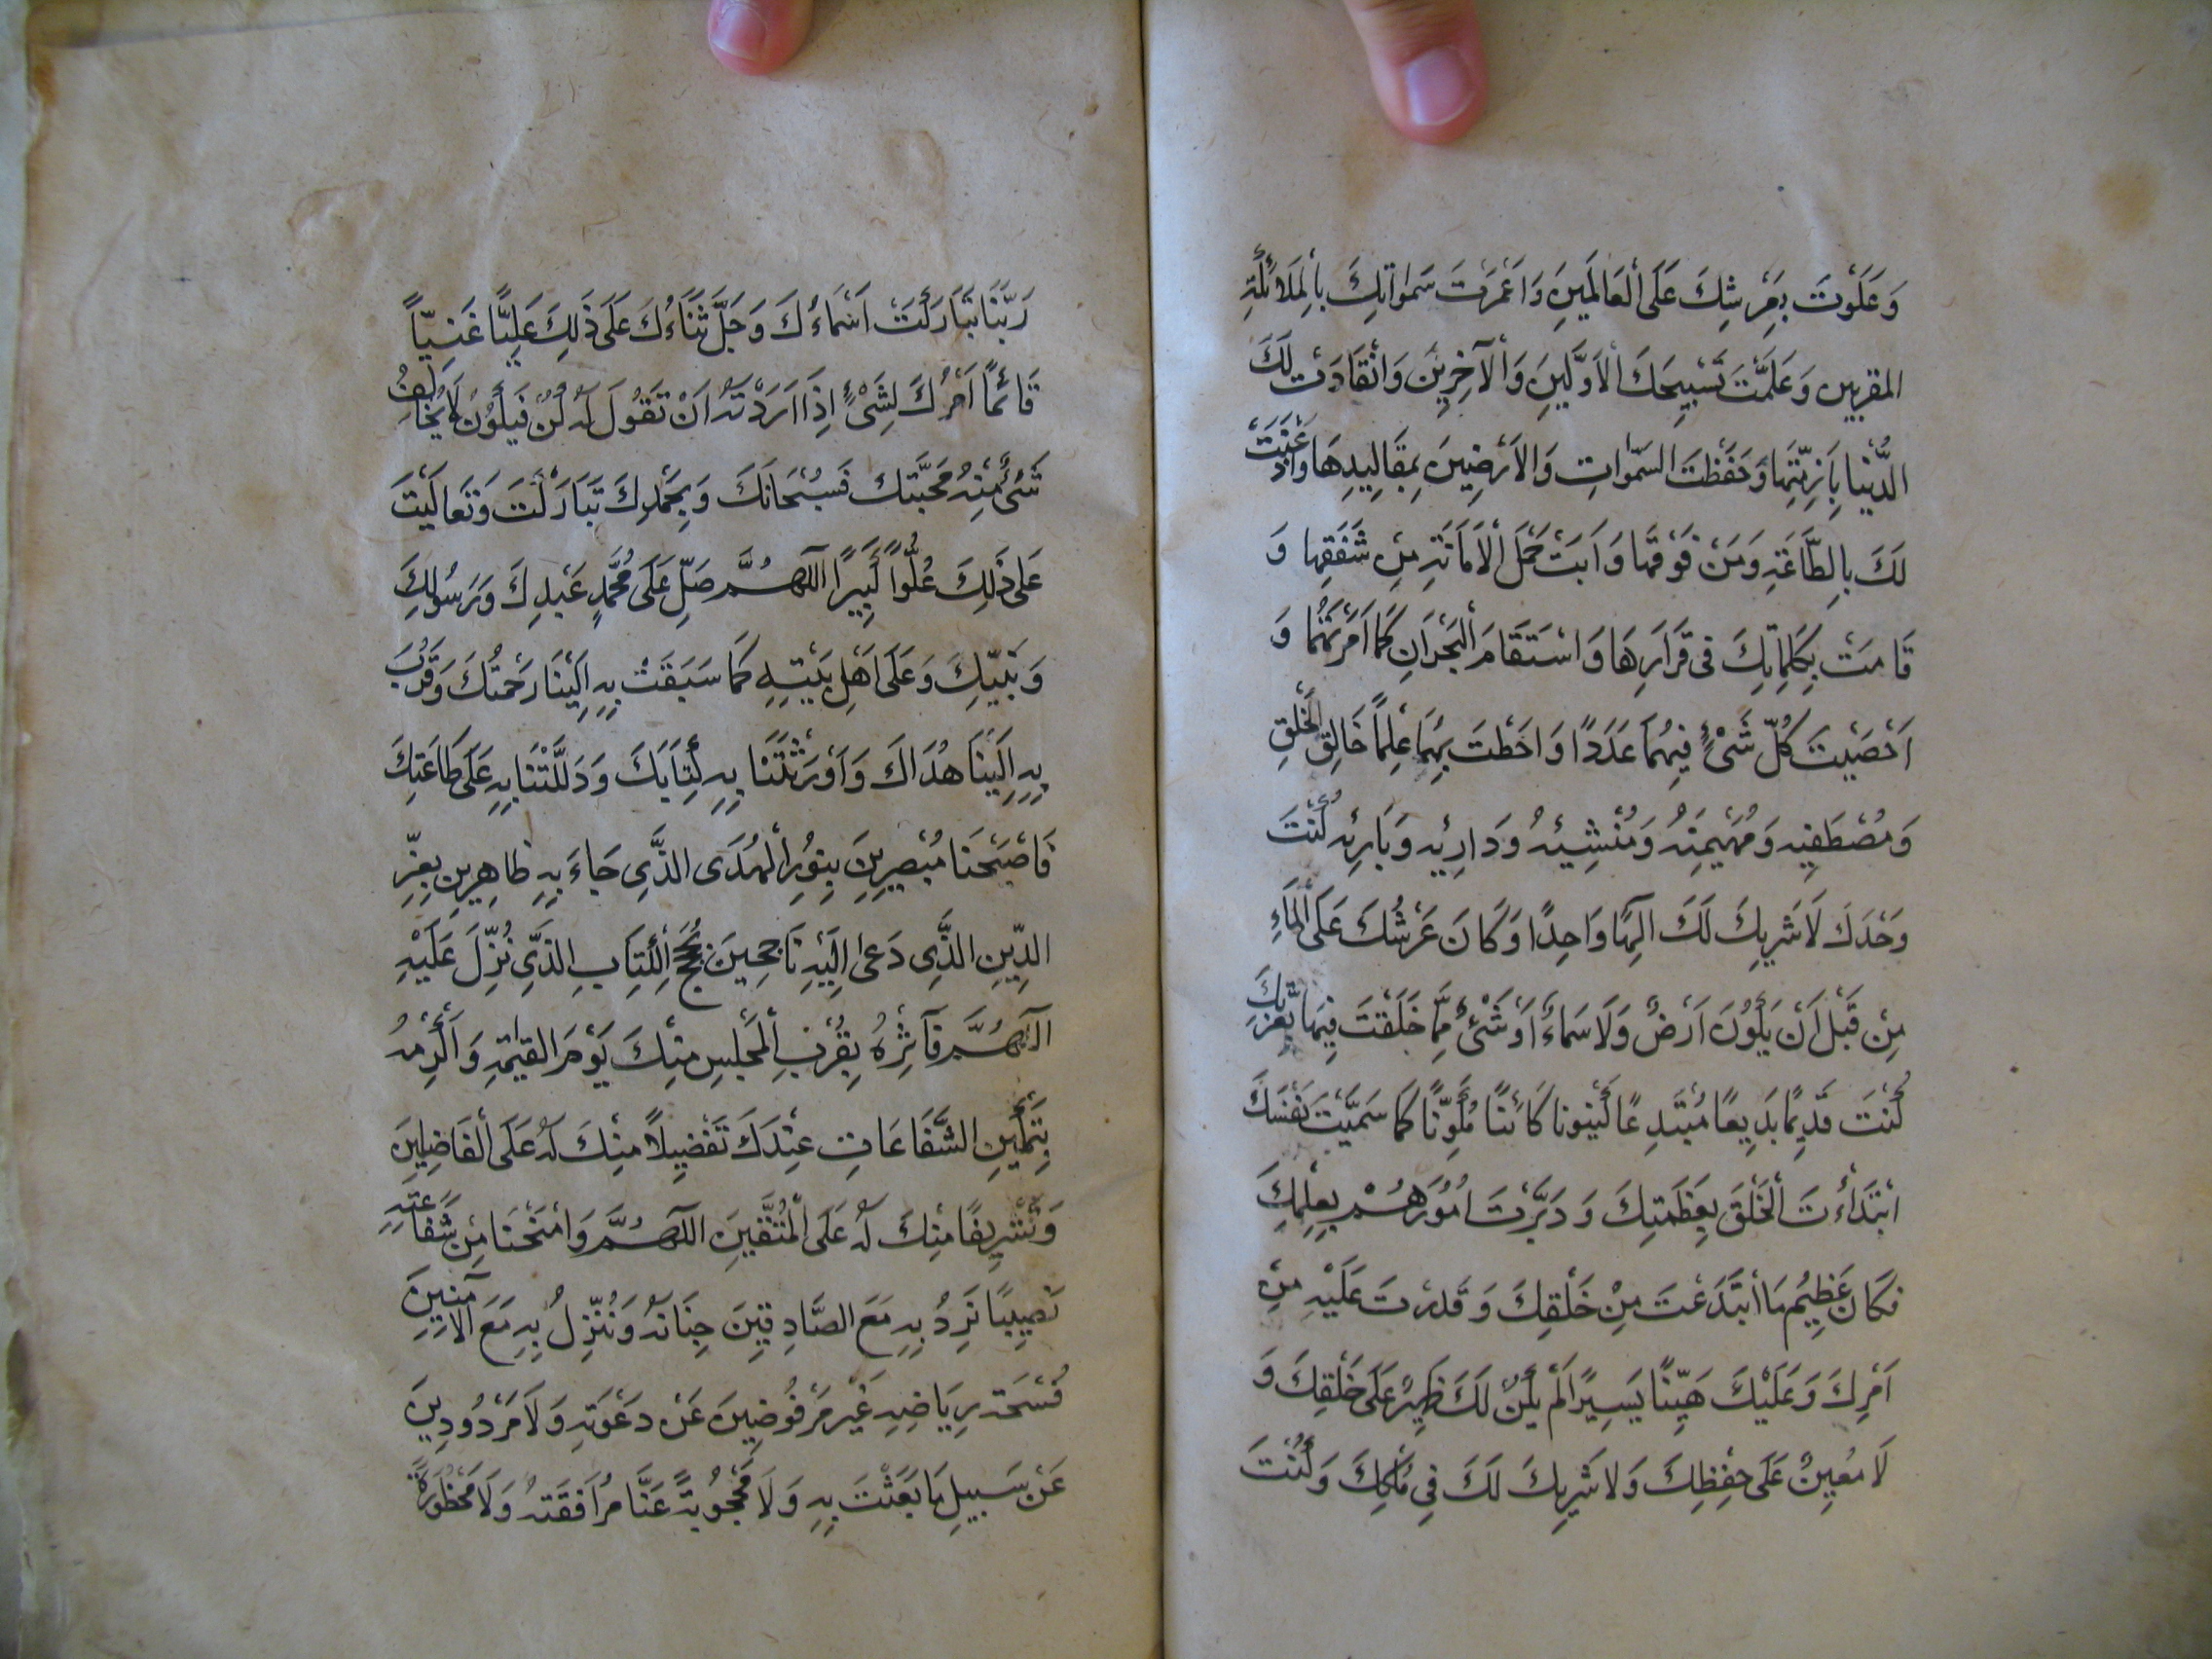 وَعَلَوْتَ بِعَرْشِكَ عَلَى الْعَالَمِينَ وَاَعْمَرْتَ سَمٰوَاتِكَ بِالْمَلَائِكَةِ
المقربين وَعَلَّمْتَ تَسْبِيحَكَ الْاَوَّلِينَ وَالْآخِرِينَ وَانْقَادَتْ لَكَ
الدُّنْيَا بِاَزِمَّتِهَا وَحَفَظْتَ السَّمٰوَاتِ وَالْاَرَضِينَ بِمَقَالِيدِهَا وَاَذْعَنَتْ
لَكَ بِالطَّاعَةِ وَمَنْ فَوْقَهَا وَاَبَتْ حَمْلَ الْاَمَانَةِ مِنْ شَفَقِهَا وَ
قَامَتْ بِكَلِمَاتِكَ فى قَرَارِهَا وَاسْتَقَامَ الْبَحْرَانِ كَمَا اَمَرْتَهُمَا وَ
اَحْصَيْتَ كُلَّ شَىْءٍ فِيهُمَا عَدَدًا وَاَحَطْتَ بِهِمَا عِلْمًا خَالِقَ الْخَلْقِ
وَمُصْطَفِيهِ وَمُهَيْمِنَهُ وَمُنْشِئَهُ وَذَارِئِهِ وَبَارِئِه كُنْتَ
وَحْدَكَ لَا شَرِيكَ لَكَ اِلٰهًا وَاحِدًا وَكَانَ عَرْشُكَ عَلَى الْمَاءِ
مِنْ قَبْلِ اَنْ يَكُونَ اَرْضٌ وَلَا سَمَاءٌ اَوْ شَىْءٌ مِمَّا خَلَقْتَ فِيهَا بِعِزَّتِكَ
كُنْتَ قَدِيمًا بَدِيعًا مُبْتَدِعًا كَيْنُونًا كَائِنًا مُكَوِّنًا كَمَا سَمَّيْتَ نَفْسَكَ
ابْتَدَأْتَ الْخَلْقَ بِعَظَمَتِكَ وَدَبَّرْتَ اُمُورَهُمْ بِعِلْمِكَ
فَكَانَ عَظِيمُ مَا ابْتَدَعْتَ مِنْ خَلْقِكَ وَقَدَرْتَ عَلَيْهِ مِنْ
اَمْرِكَ وَعَلَيْكَ هَيِّنًا يَسِيرًا لَمْ يَكُنْ لَكَ ظَهِيرٌ عَلَى خَلْقِكَ وَ
لَا مُعِينٌ عَلَى حِفْظِكَ وَلَا شَرِيكَ لَكَ فِى مُلْكِكَ وَكُنْتَ
رَبَّنَا تَبَارَكَتْ اَسْمَاءُكَ وَجَلَّ ثَنَاءُكَ عَلَى ذٰلِكَ عَلِيًّا غَنِيًّا
قَائِمًا اَمْرُكَ لِشَىْءٍ اِذَا اَرَدْتَهُ اَنْ تَقُولَ لَهُ كُنْ فَيَكُونُ لَا يُخَالِفُ
شَىْءٌ مِنْهُ مَحَبَّتَكَ فَسُبْحَانَكَ وَبِحَمْدِكَ تَبَارَكْتَ وَتَعَالَيْتَ
عَلَى ذٰلِكَ عُلُوًّا كَبِيرًا اللّٰهُمَّ صَلِّ عَلَى مُحَمَّدٍ عَبْدِكَ وَرَسُولِكَ
وَنَبِيِّكَ وَعَلَى اَهْلِ بَيْتِهِ كَمَا سَبَقَتْ بِهِ اِلَيْنَا رَحْمَتُكَ وَقَرُبَ
بِهِ اِلَيْنَا هُدَاكَ وَاَوْرَثْتَنَا بِهِ كِتَابَكَ وَدَلَلْتَنَا بِهِ عَلَى طَاعَتِكَ
فَاَصْبَحْنَا مُبْصِرِينَ بِنُورِ الْهُدَى الَّذِى جَاءَ بِهِ ظَاهِرِينَ بِعِزِّ
الدِّينِ الَّذِى دَعَى اِلَيْهِ نَاجِحِينَ بِحُجَجِ الْكِتَابِ الَّذِى نُزِّلَ عَلَيْهِ
اَللّٰهُمَّ فَآثِرْهُ بِقُرْبِ الْمَجْلِسِ مِنْكَ يَوْمَ الْقِيٰمَةِ وَاَكْرِمْهُ
بِتَمْكِينِ الشَّفَاعَاتِ عِنْدَكَ تَفْضِيلًا مِنْكَ لَهُ عَلَى الْفَاضِلِينَ
وَتَشْرِيفًا مِنْكَ لَهُ عَلَى الْمُتَّقِينَ اللّٰهُمَّ وَامْنَحْنَا مِنْ شَفَاعَتِهِ
نَصِيبًا نَرِدُ بِهِ مَعَ الصَّادِقِينَ جِنَانَهُ وَنَنْزِلُ بِهِ مَعَ الْآمِنِينَ
فُسْحَةَ رِيَاضِهِ غَيْرَ مَرْفُوضِينَ عَنْ دَعْوَتِهِ وَلَا مَرْدُودِينَ
عَنْ سَبِيلِ مَا بَعَثْتَ بِهِ وَلَا مَحْجُوبَةً عَنَّا مُرَافَقَتُهُ وَلَا مَحْظُورَةً